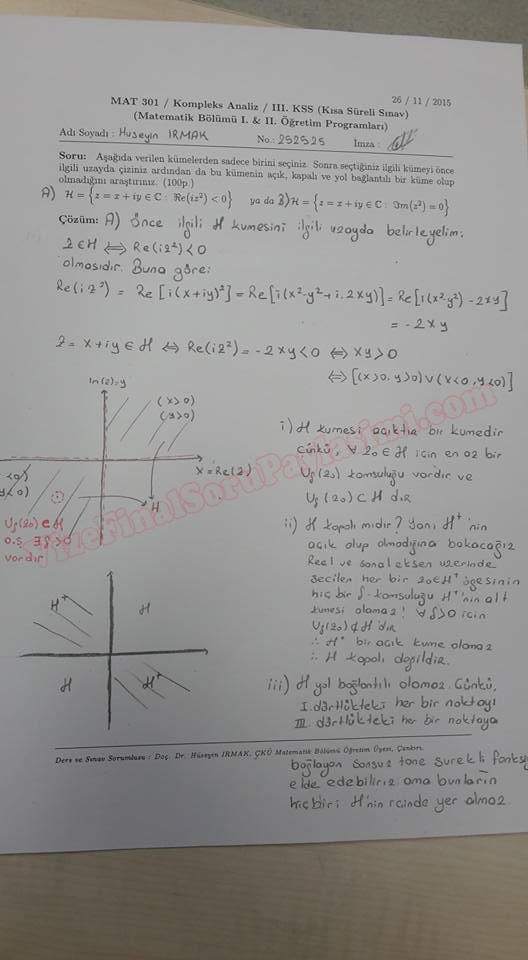 26 / 11 / 2015
MAT 301 / Kompleks Analiz / III. KSS (Kısa Süreli Sınav)
(Matematik Bölümü I. & II. Öğretim Programları)
Adı Soyadı : Huseyin IRMAK No.: 252525 İmza :
Soru: Aşağıda verilen kümelerden sadece birini seçiniz. Sonra seçtiğiniz ilgili kümeyi önce
ilgili uzayda çiziniz ardından da bu kümenin açık, kapalı ve yol bağlantılı bir küme olup
olmadığını araştırınız. (100p.)
A) H = {z = x + iy ∈ C : Re(iz²) < 0} ya da B) H = {z = x + iy ∈ C : Im(z²) = 0}
Çözüm: A) Önce ilgili H kumesini ilgili uzayda belirleyelim;
z ∈ H ⟺ Re(iz²) < 0
olmasıdır. Buna göre:
Re(iz²) = Re[i(x+iy)²] = Re[i(x²-y²+i.2xy)] = Re[i(x²-y²)-2xy]
= -2xy
z = x+iy ∈ H ⟺ Re(iz²) = -2xy < 0 ⟺ xy > 0
⟺ [(x>0, y>0) ∨ (x<0, y<0)]
Im(z)=y
(x>0)
(y>0)
x=Re(z)
<0)
y<0)
H
Uδ(z0) ⊂ H
o.ş. ∃ δ>0
vardır
i) H kumesi açıktır bir kumedir
Çünkü, ∀ z0 ∈ H icin en az bir
Uδ(z0) komsuluğu vardır ve
Uδ(z0) ⊂ H dır
ii) H kapalı mıdır? Yani H⁺'nin
açık olup olmadığına bakacağız
Reel ve sanal eksen uzerinde
secilen her bir z0∈H⁺ ögesinin
hiç bir δ-komsuluğu H⁺'nin alt
kumesi olamaz! ∀ δ>0 icin
Uδ(z0) ⊄ H dır
∴ H⁺ bir açık kume olamaz
∴ H kapalı değildir.
H⁺
H
H
H⁺
iii) H yol bağlantılı olamaz. Çünkü,
I. dörtlükteki her bir noktayı
III. dörtlükteki her bir noktaya
Ders ve Sınav Sorumlusu : Doç. Dr. Hüseyin IRMAK, ÇKÜ Matematik Bölümü Öğretim Üyesi, Çankırı.
bağlayan sonsuz tane surekli fonksiy
elde edebiliriz ama bunların
hiçbiri H'nin icinde yer almaz.
VizeFinalSoruPaylasimi.com